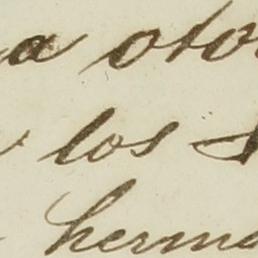 a oto
los
herma